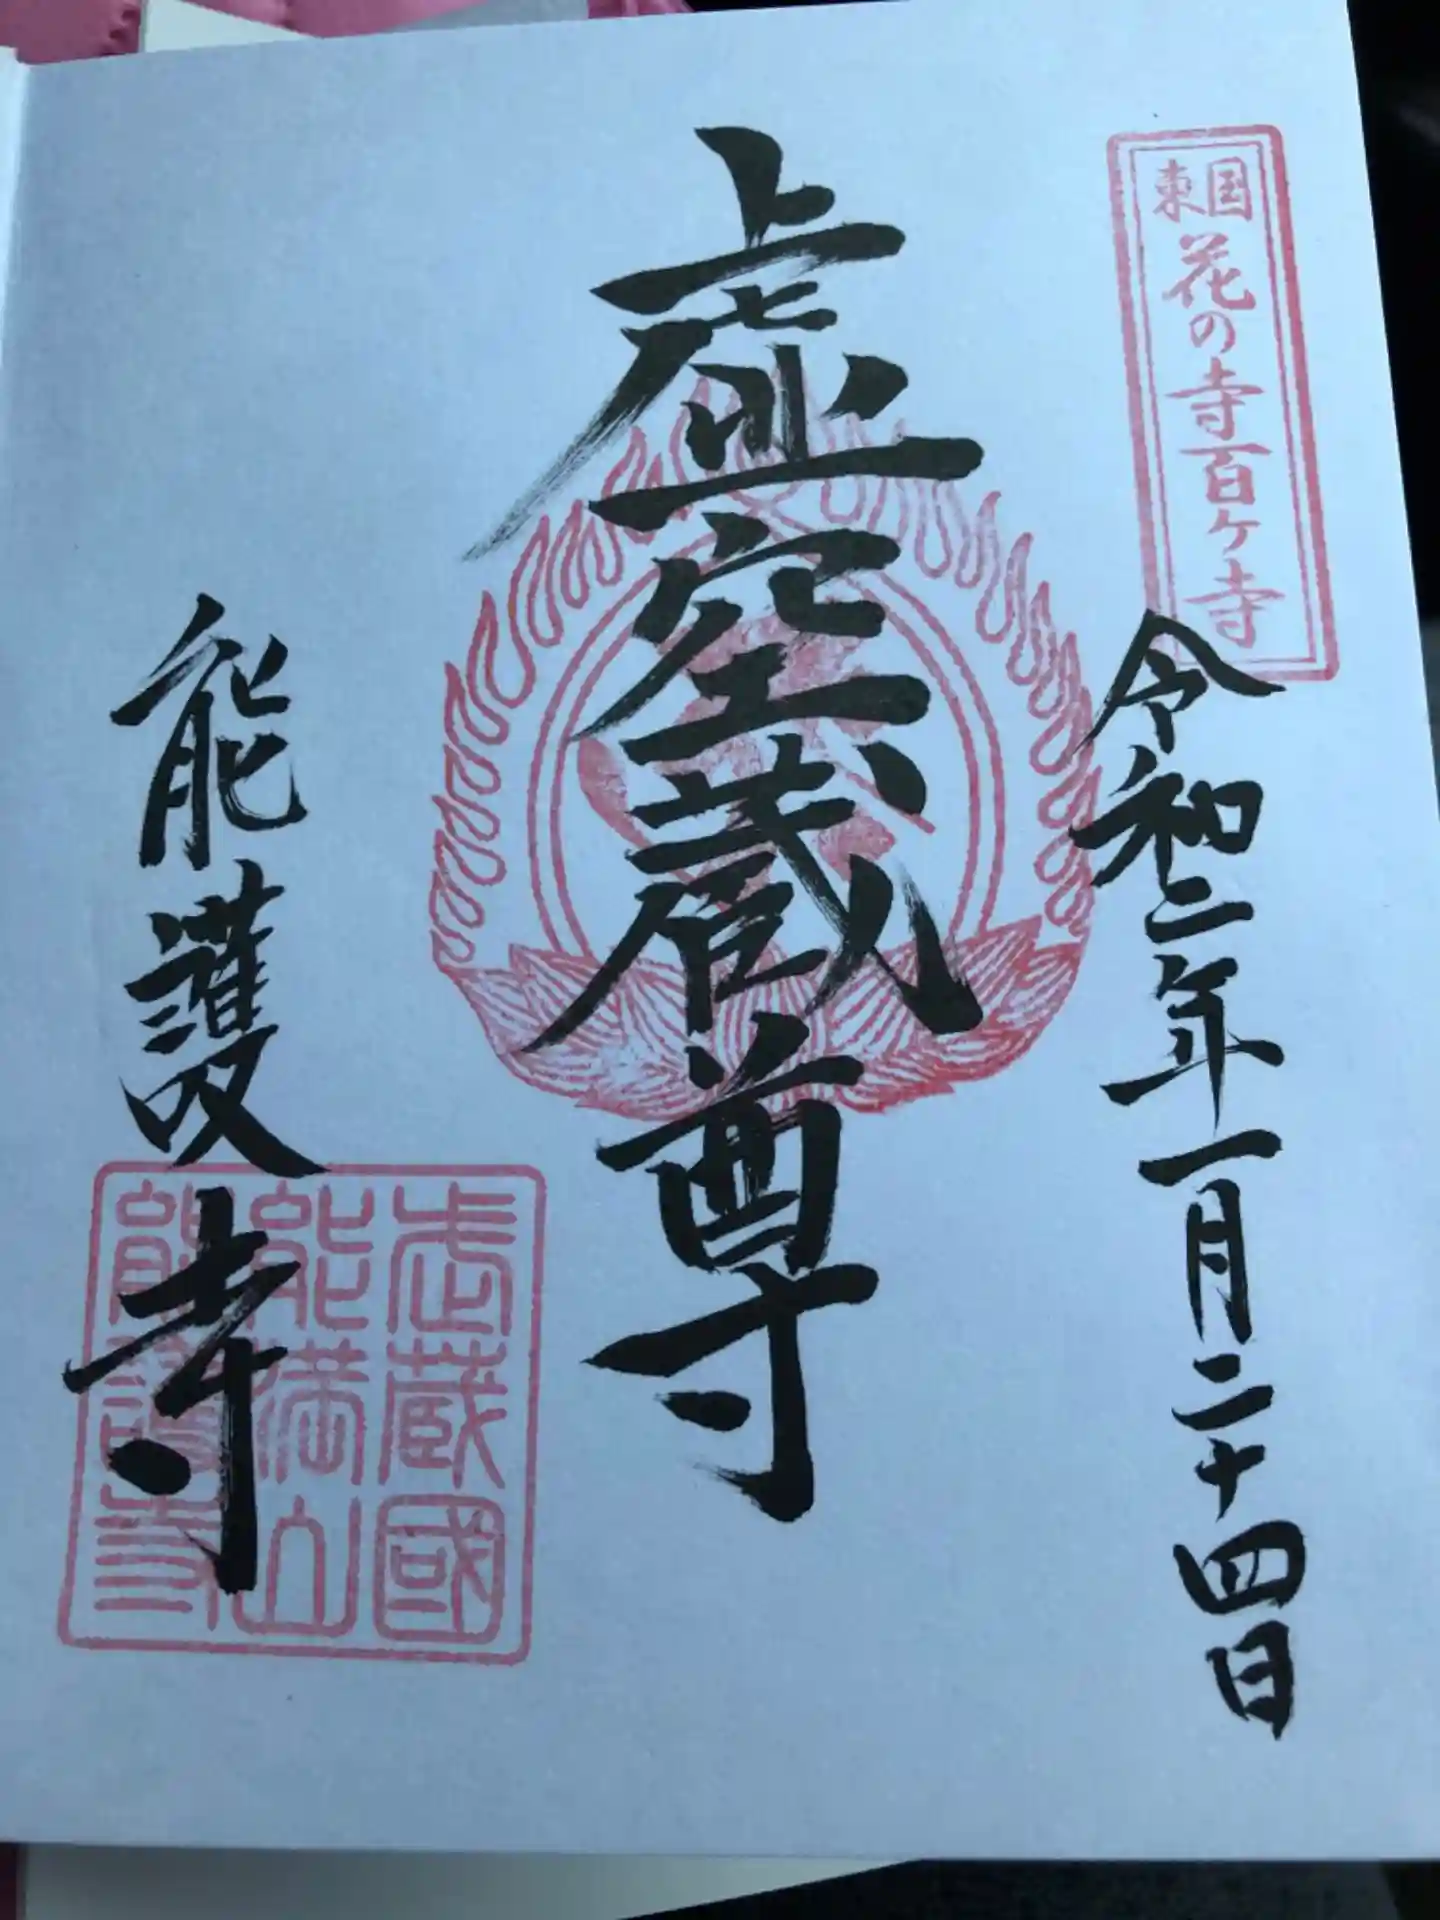 東国花の寺百ヶ寺
令和二年一月二十四日
虚空蔵尊
能護寺
武蔵國
能満山
能護寺